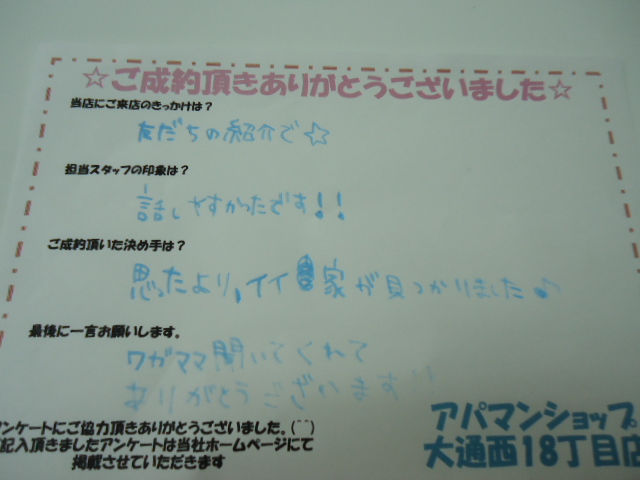 ☆ご成約頂きありがとうございました☆
当店にご来店のきっかけは？
友だちの紹介で☆
担当スタッフの印象は？
話しやすかったです!!
ご成約頂いた決め手は？
思ったより、イイ家が見つかりました♪
最後に一言お願いします。
ワガママ聞いてくれて
ありがとうございます
アンケートにご協力頂きありがとうございました。(^^)
記入頂きましたアンケートは当社ホームページにて
掲載させていただきます
アパマンショップ
大通西18丁目店